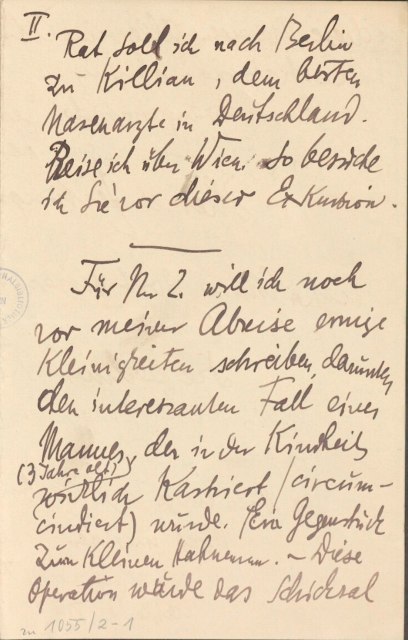 II.
Rat soll ich nach Berlin
zu Killian, dem besten
Nasenarzte in Deutschland.
Reise ich über Wien, so besuche
ich Sie vor dieser Exkursion.
Für Nr 2. will ich noch
vor meiner Abreise einige
Kleinigkeiten schreiben, darunter
den interessanten Fall eines
Mannes, der in der Kindheit
(3 Jahre alt)
wirklich kastriert (circum-
cindiert) wurde. (Ein Gegenstück
zum kleinen Hahnemann. – Diese
Operation wurde das Schicksal
zu 1055/2-1